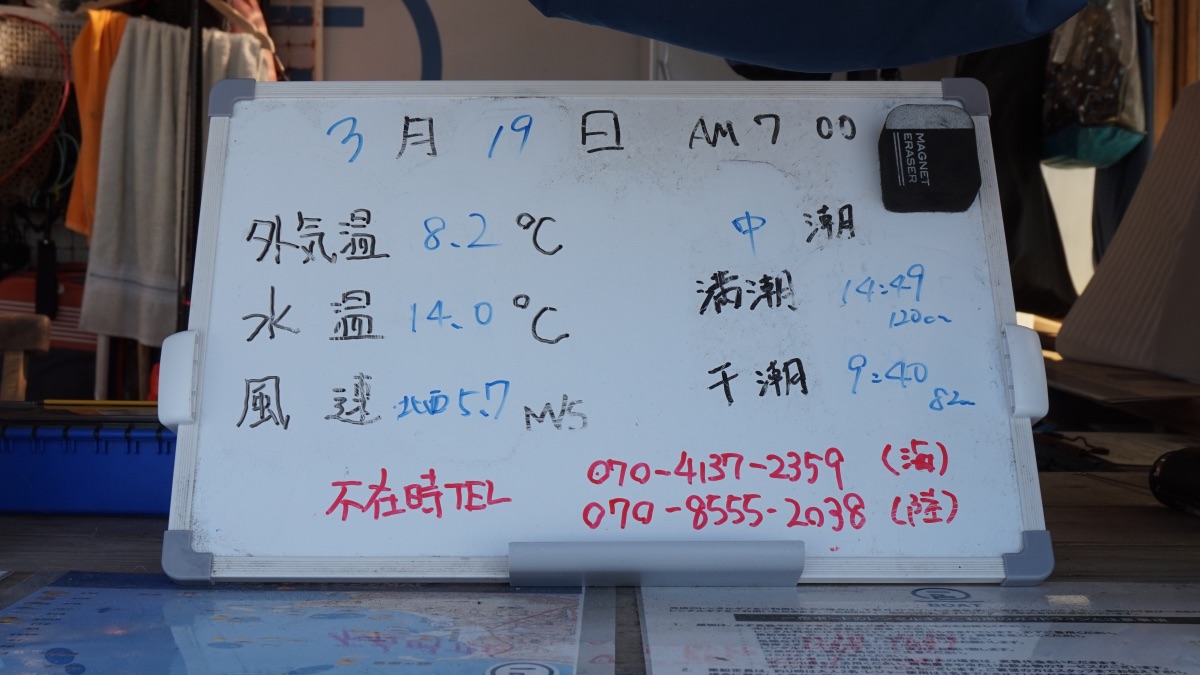 3月19日 AM 7 00
MAGNET
ERASER
外気温 8.2 ℃
中潮
水温 14.0 ℃
満潮 14:49
120cm
風速 北西5.7 M/S
干潮 9:40
82cm
不在時TEL 070-4137-2359 (海)
070-8555-2038 (陸)
BOAT